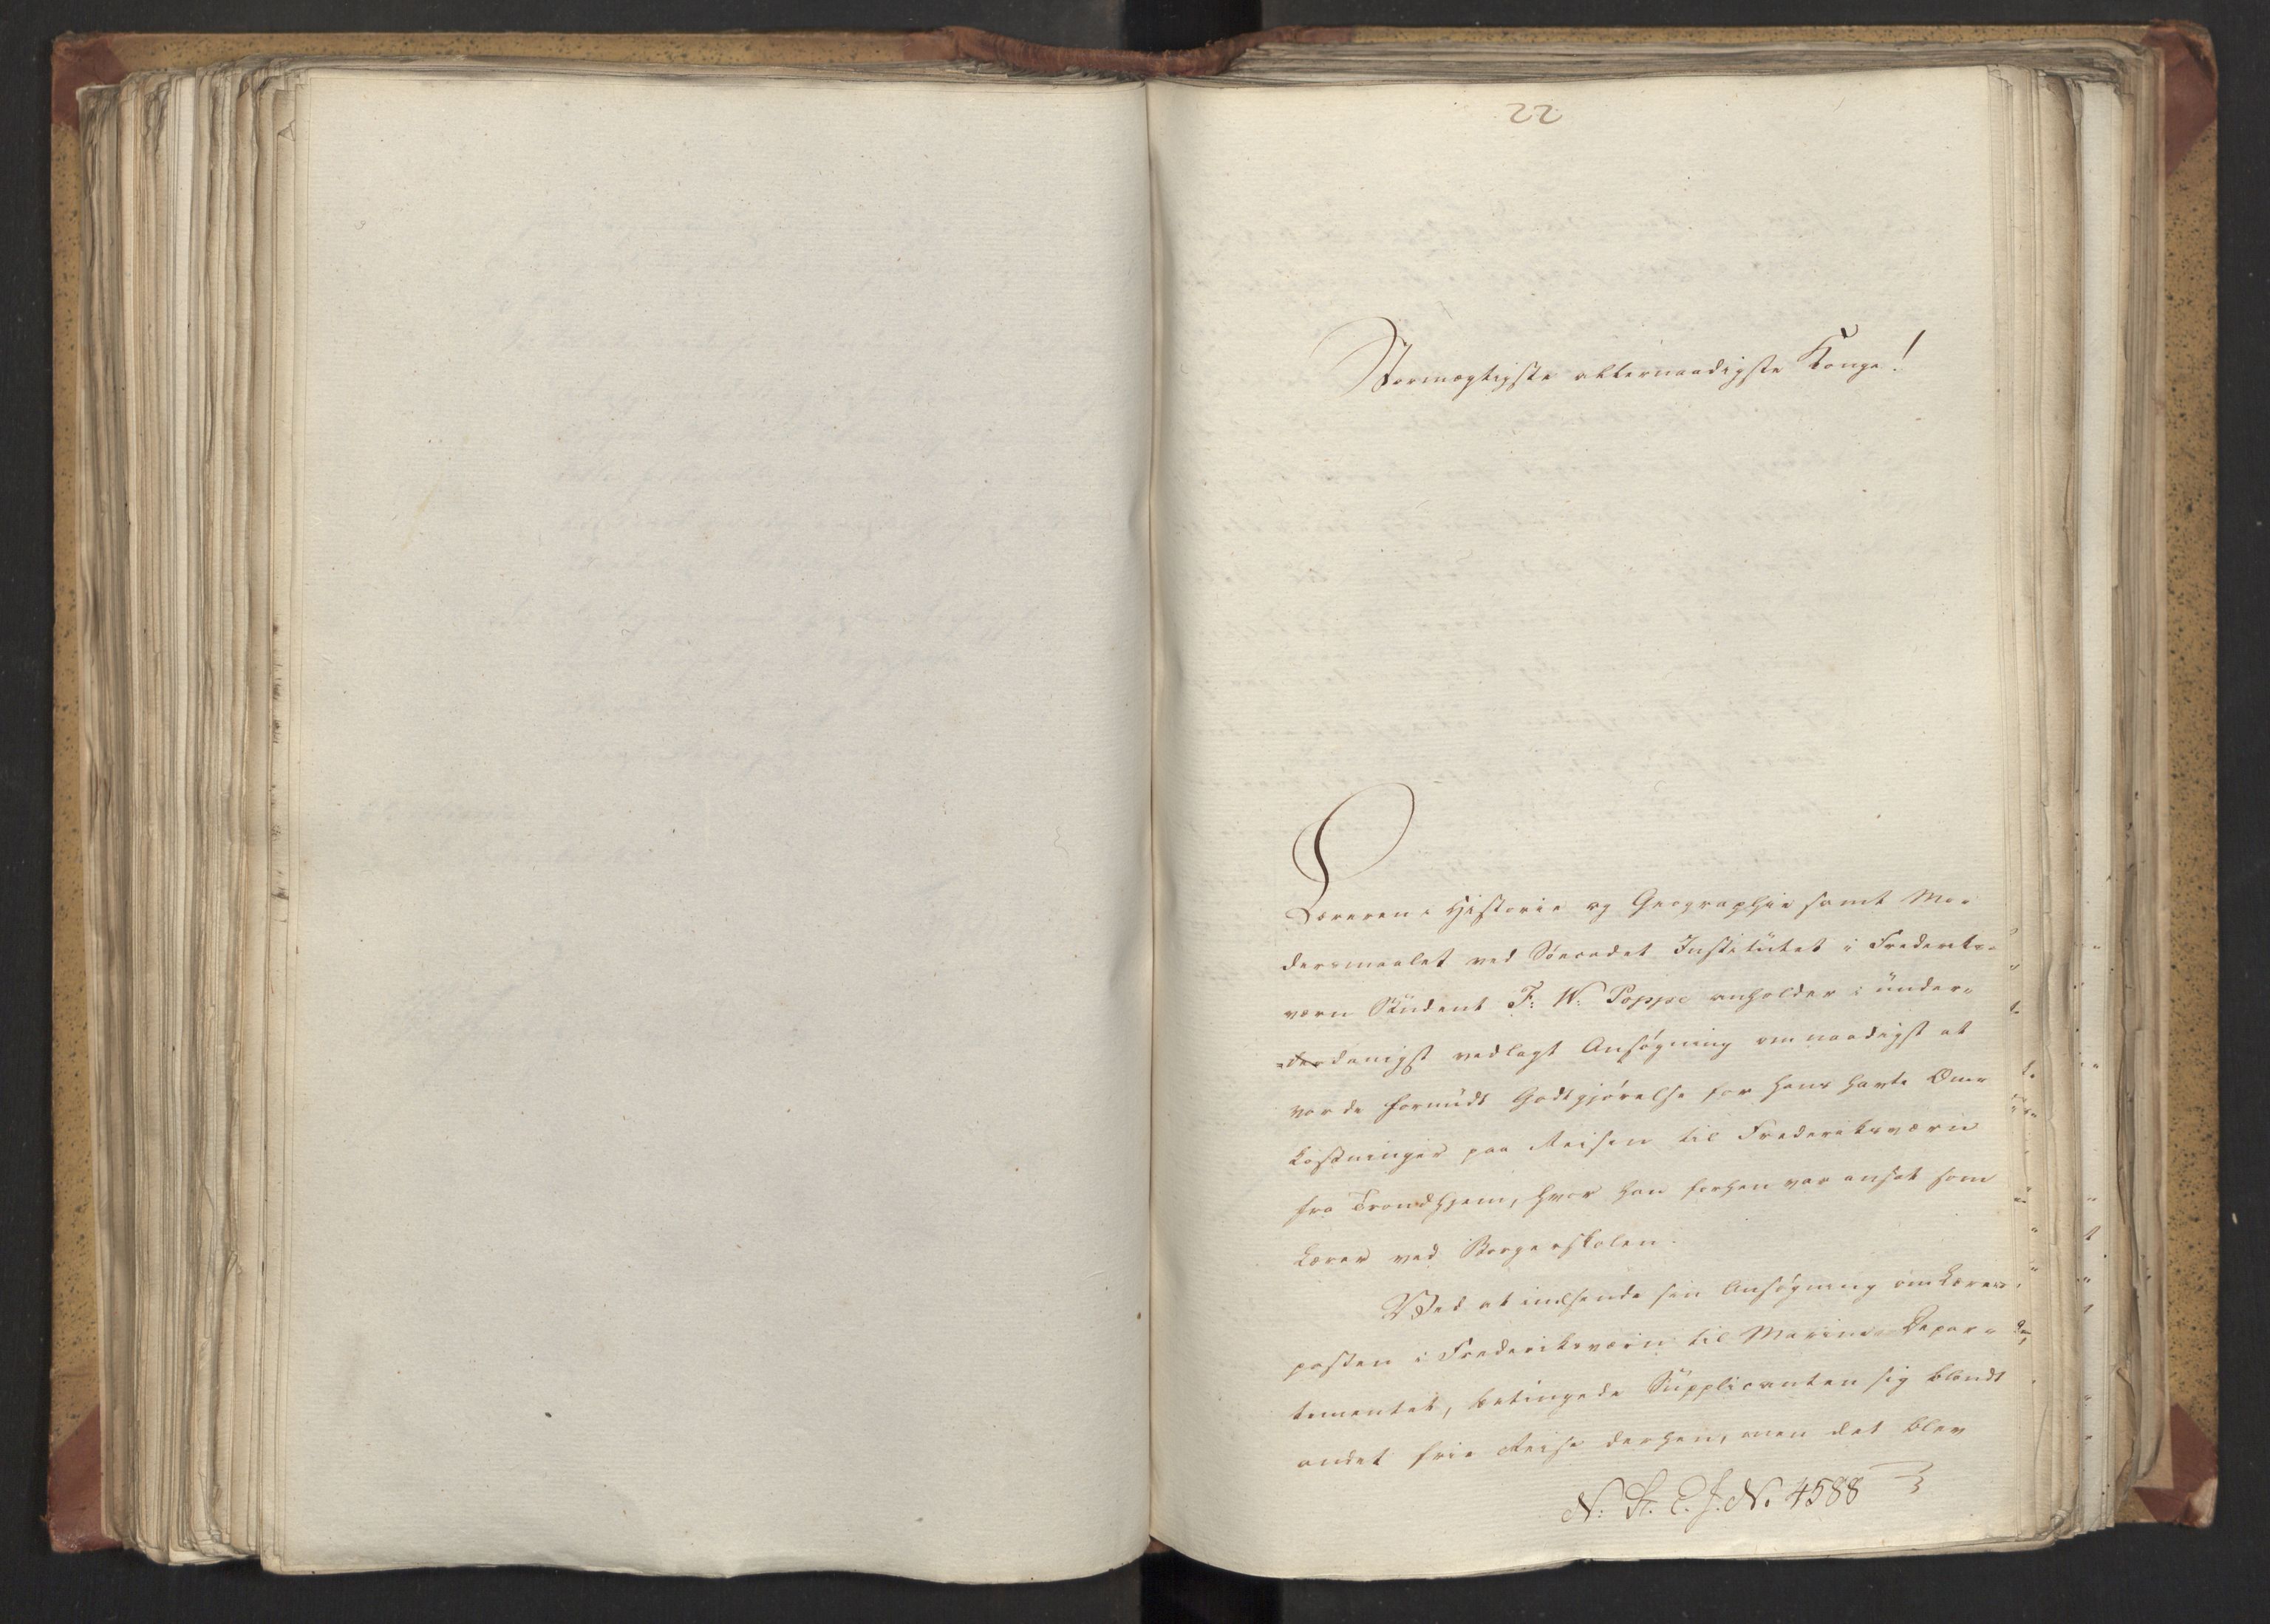 22
Stormægtigste allernaadigste Konge!
Læreren i Historie og Geographie samt Mo-
dersmaalet ved Søecadet Institutet i Frederiks-
værn Student F: W: Poppe anholder i under-
danigst vedlagt Ansøgning om naadigst at
vorde forundt Godtgjørelse for hans havte Om-
kostninger paa Reisen til Frederiksværn
fra Trondhjem, hvor han forhen var ansat som
Lærer ved Borgerskolen.
Ved at indsende sin Ansøgning om Lærer-
posten i Frederiksværn til Marine-Depar-
tementet, betingede Supplicanten sig blandt
andet frie Reise derhen, men det blev
N: St. E. J. No 4588